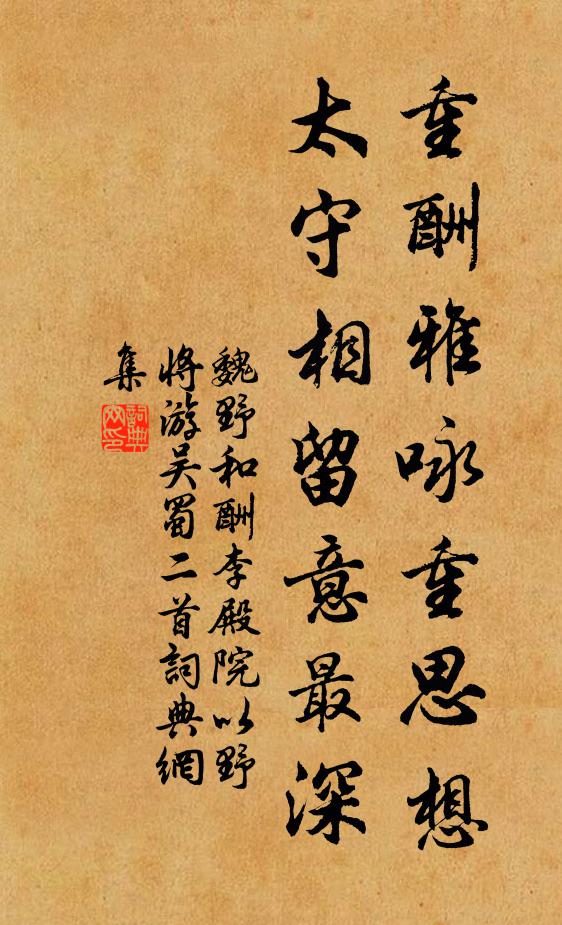 重酬雅咏重思想
太守相留意最深
魏野和酬李殿院以野
将游吴蜀二首詞典網
集
詞典
网印